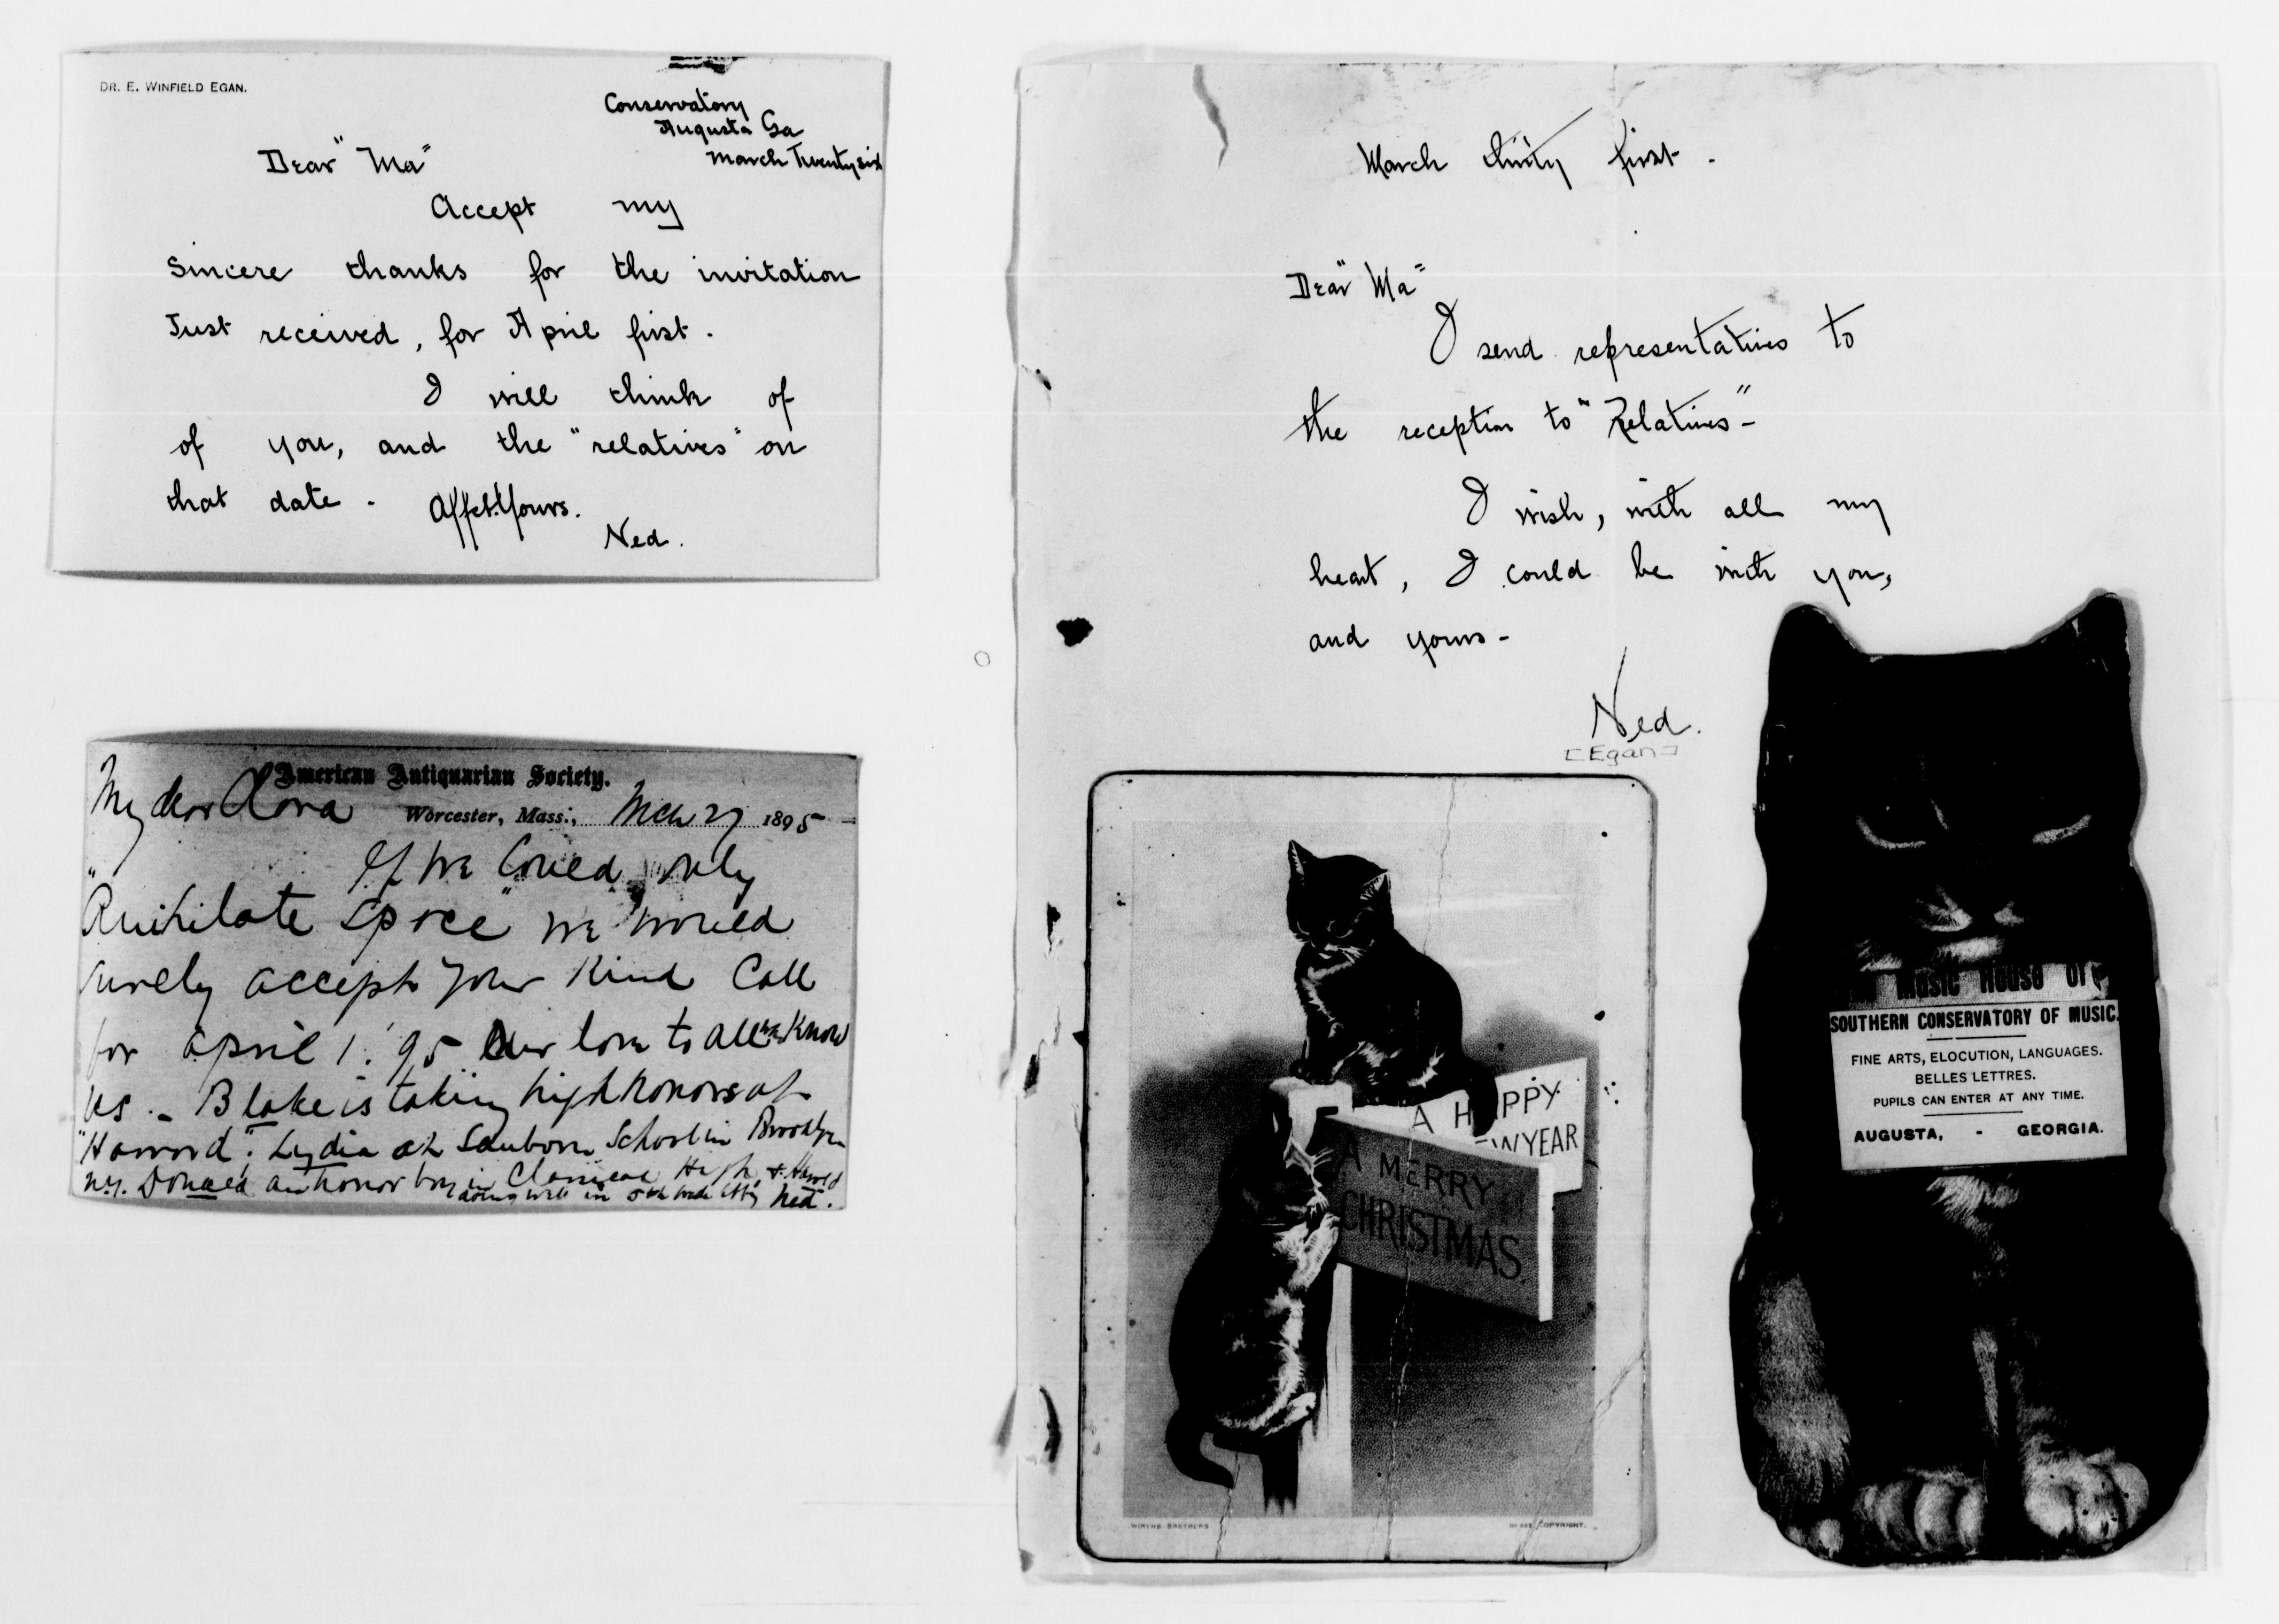 DR. E. WINFIELD EGAN.
Conservatory
Augusta Ga
March Twenty six
Dear "Ma"
Accept my
Sincere thanks for the invitation
Just received, for April first.
I will think of
of you, and the "relatives" on
that date. Affct. Yours.
Ned.
American Antiquarian Society.
My dear Clara
Worcester, Mass., Mch 27 1895
If we could only
"Anihilate Space" we would
surely accept your kind Call
for April 1. '95 Our love to all who know
us. - Blake is taking high honors at
"Harvard". Lydia at Sanborn School in Brooklyn
N.Y. Donald an honor boy in Classical High, & Harold
doing well in 5th Grade Ned.
March thirty first.
Dear "Ma"
I send representatives to
the reception to "Relatives"-
I wish, with all my
heart, I could be with you,
and yours-
Ned.
[Egan]
A HAPPY
NEWYEAR
A MERRY
CHRISTMAS.
WIRTHS BROTHERS
COPYRIGHT.
Music House of
SOUTHERN CONSERVATORY OF MUSIC.
FINE ARTS, ELOCUTION, LANGUAGES.
BELLES LETTRES.
PUPILS CAN ENTER AT ANY TIME.
AUGUSTA, - GEORGIA.